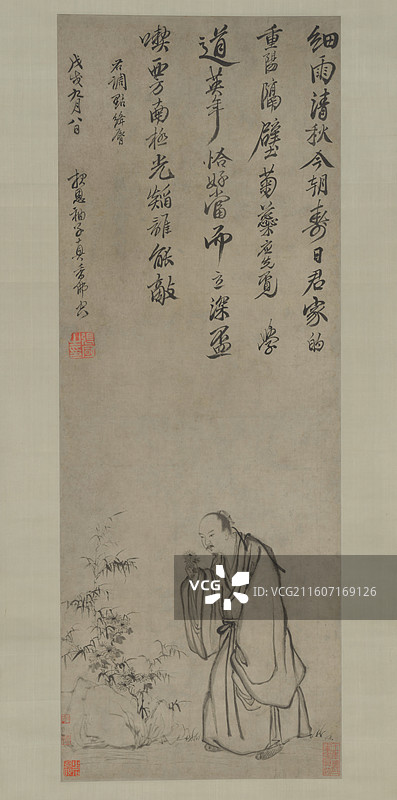 細雨清秋今朝壽日君家的
重陽隔壁菊蘂應先覓學
道英年恰好當而立深盃
喫西方南極光燄誰能敵
右調點絳唇
戊戌九月八日
VCG
ID:VCG211607169126